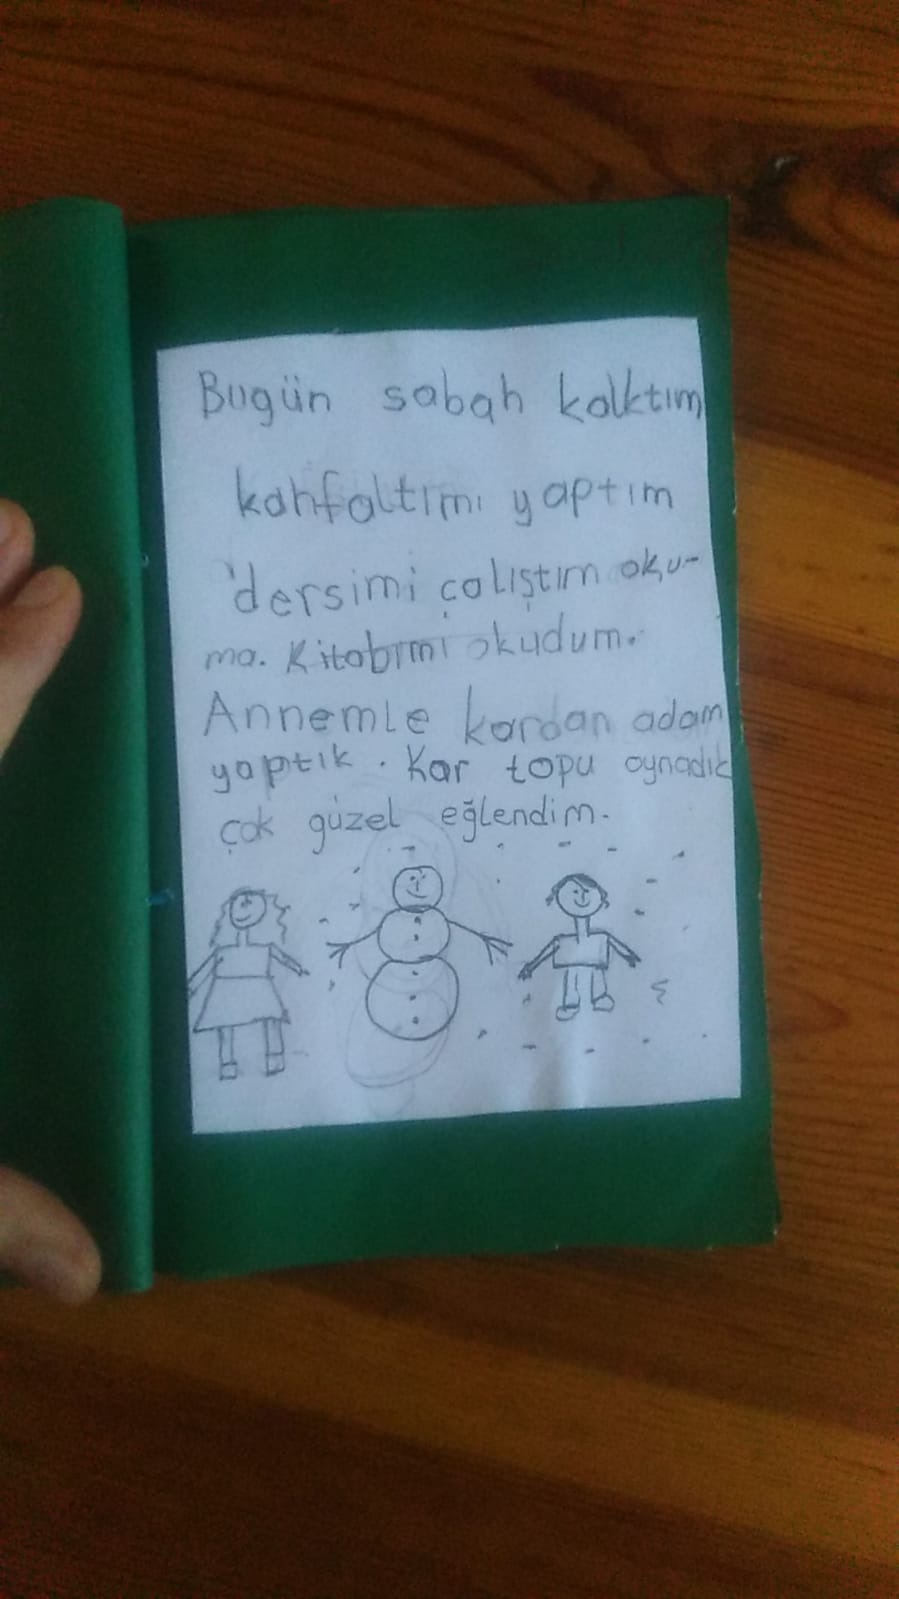 Bugün sabah kalktım
kahfaltımı yaptım
dersimi çalıştım oku-
ma. Kitabımı okudum.
Annemle kardan adam
yaptık. Kar topu oynadık
çok güzel eğlendim.